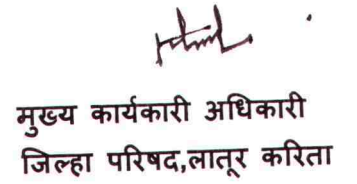 मुख्य कार्यकारी अधिकारी
जिल्हा परिषद,लातूर करिता